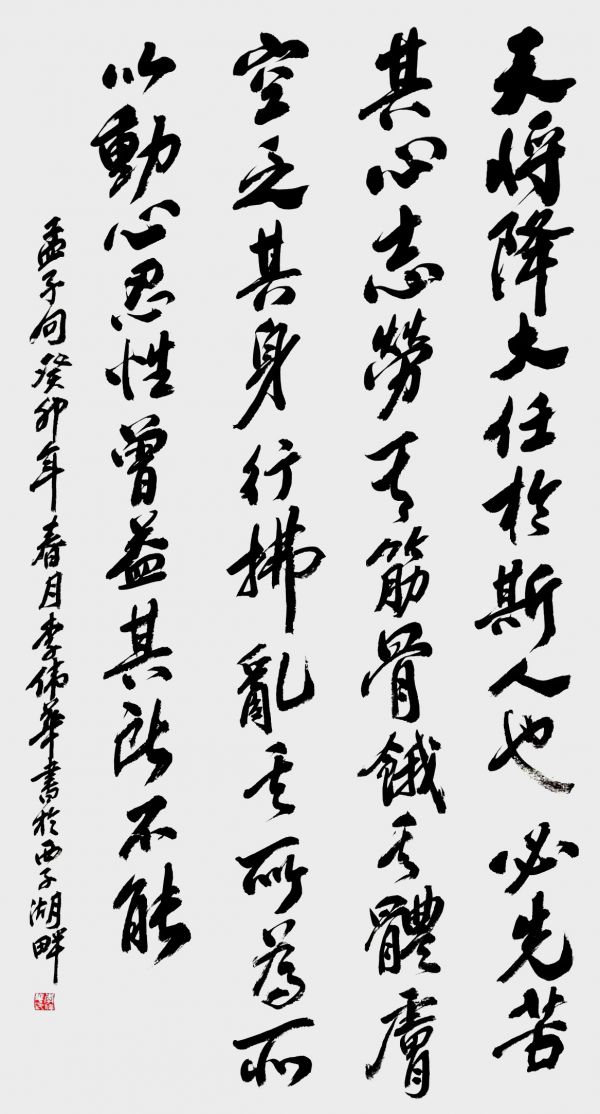 天将降大任於斯人也必先苦
其心志勞其筋骨餓其體膚
空乏其身行拂亂其所為所
以動心忍性曾益其所不能
孟子句癸卯年春月李伟華書於西子湖畔